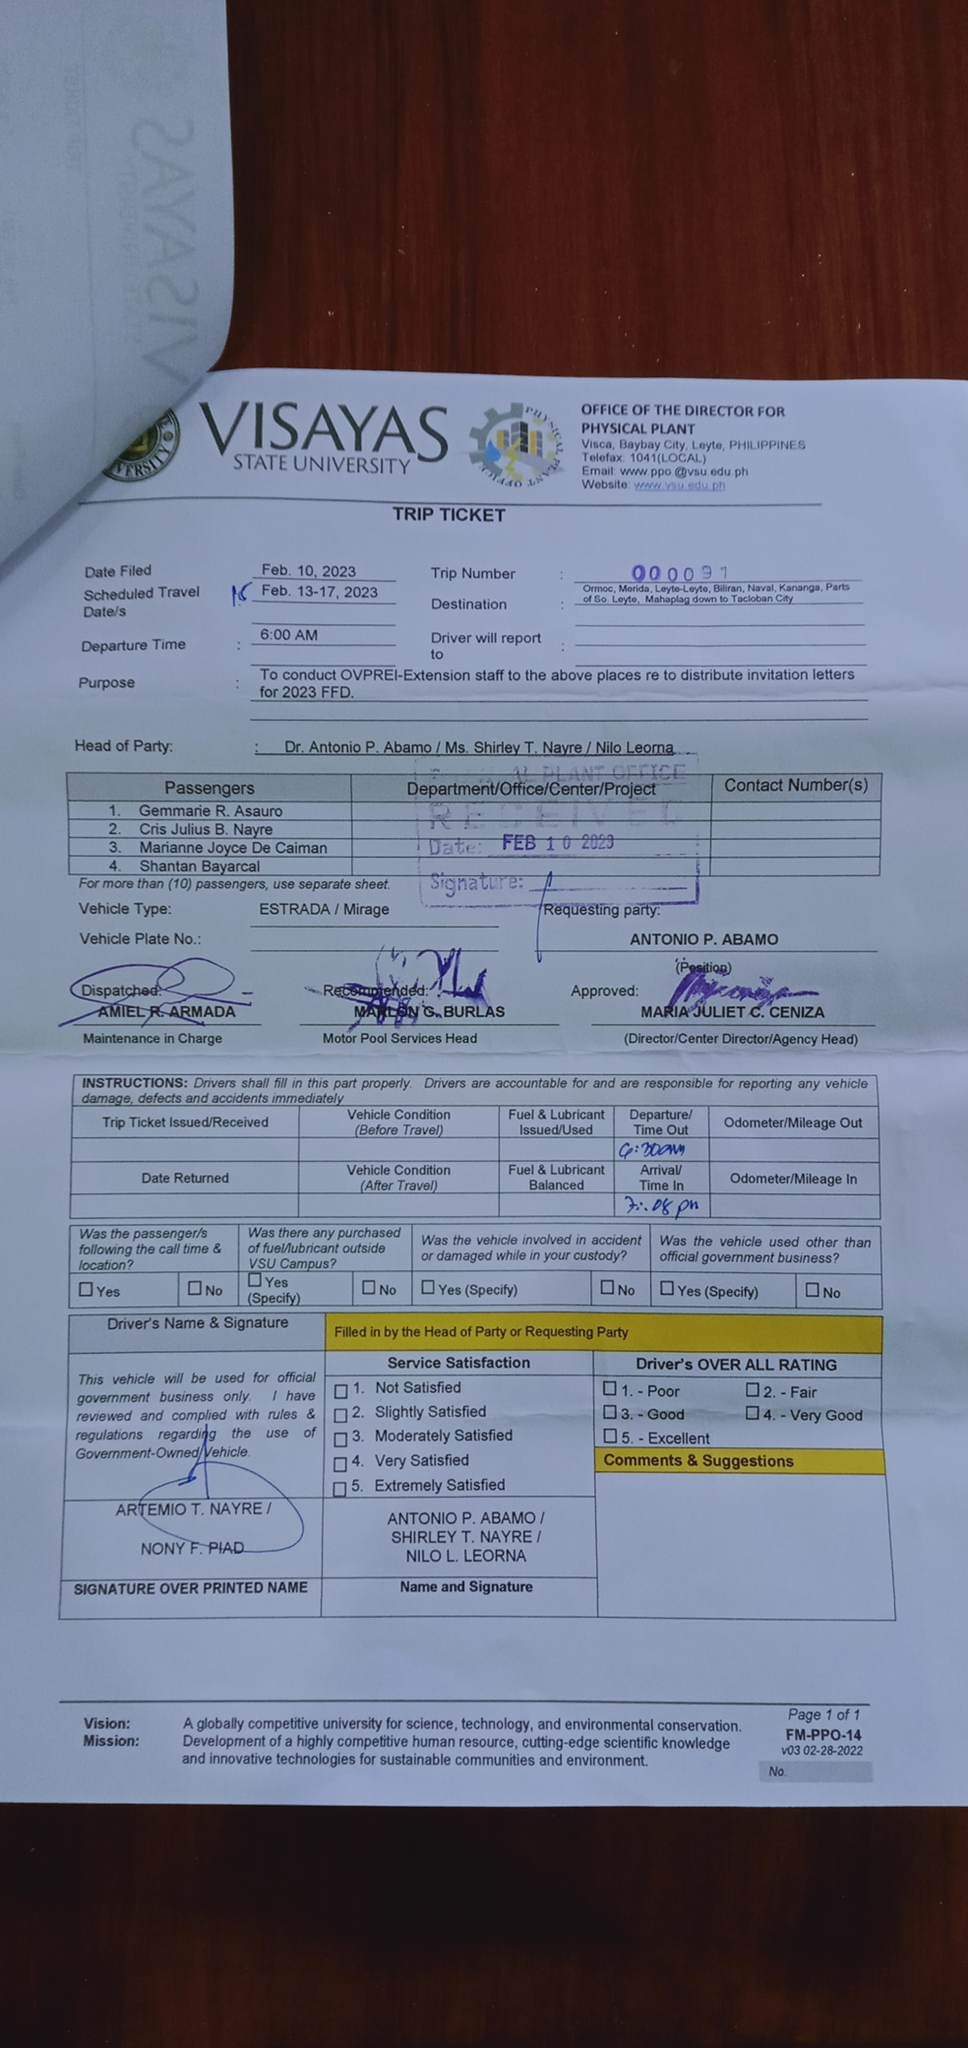 VISAYAS
STATE UNIVERSITY
OFFICE OF THE DIRECTOR FOR
PHYSICAL PLANT
Visca, Baybay City, Leyte, PHILIPPINES
Telefax: 1041(LOCAL)
Email: www.ppo @vsu.edu.ph
Website: www.vsu.edu.ph
TRIP TICKET
Date Filed Feb. 10, 2023 Trip Number : 000091
Scheduled Travel Date/s Feb. 13-17, 2023
Destination : Ormoc, Merida, Leyte-Leyte, Biliran, Naval, Kananga, Parts
of So. Leyte, Mahaplag down to Tacloban City
Departure Time : 6:00 AM Driver will report to :
Purpose : To conduct OVPREI-Extension staff to the above places re to distribute invitation letters
for 2023 FFD.
Head of Party: : Dr. Antonio P. Abamo / Ms. Shirley T. Nayre / Nilo Leorna
PLANT OFFICE
RECEIVED
Date: FEB 10 2023
Signature:
Passengers Department/Office/Center/Project Contact Number(s)
1. Gemmarie R. Asauro
2. Cris Julius B. Nayre
3. Marianne Joyce De Caiman
4. Shantan Bayarcal
For more than (10) passengers, use separate sheet.
Vehicle Type: ESTRADA / Mirage Requesting party:
Vehicle Plate No.: ANTONIO P. ABAMO
(Position)
Dispatched: Recommended: Approved:
AMIEL R. ARMADA MARLON G. BURLAS MARIA JULIET C. CENIZA
Maintenance in Charge Motor Pool Services Head (Director/Center Director/Agency Head)
INSTRUCTIONS: Drivers shall fill in this part properly. Drivers are accountable for and are responsible for reporting any vehicle
damage, defects and accidents immediately
Trip Ticket Issued/Received Vehicle Condition (Before Travel) Fuel & Lubricant Issued/Used Departure/ Time Out Odometer/Mileage Out
6:30am
Date Returned Vehicle Condition (After Travel) Fuel & Lubricant Balanced Arrival/ Time In Odometer/Mileage In
7:08 pm
Was the passenger/s following the call time & location? Was there any purchased of fuel/lubricant outside VSU Campus? Was the vehicle involved in accident or damaged while in your custody? Was the vehicle used other than official government business?
Yes No Yes (Specify) No Yes (Specify) No Yes (Specify) No
Driver's Name & Signature
Filled in by the Head of Party or Requesting Party
Service Satisfaction Driver's OVER ALL RATING
This vehicle will be used for official
government business only. I have
reviewed and complied with rules &
regulations regarding the use of
Government-Owned Vehicle.
1. Not Satisfied
2. Slightly Satisfied
3. Moderately Satisfied
4. Very Satisfied
5. Extremely Satisfied
1. - Poor 2. - Fair
3. - Good 4. - Very Good
5. - Excellent
Comments & Suggestions
ARTEMIO T. NAYRE /
NONY F. PIAD
SIGNATURE OVER PRINTED NAME
ANTONIO P. ABAMO /
SHIRLEY T. NAYRE /
NILO L. LEORNA
Name and Signature
Vision: A globally competitive university for science, technology, and environmental conservation.
Mission: Development of a highly competitive human resource, cutting-edge scientific knowledge
and innovative technologies for sustainable communities and environment.
Page 1 of 1
FM-PPO-14
v03 02-28-2022
No.